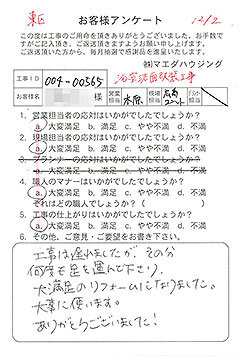 東区 お客様アンケート 12/2
この度は工事のご用命を頂きありがとうございました。お手数で
すがご記入頂き、ご返送頂きますようお願い申し上げます。
ご返送頂いた方から、毎月抽選で感謝品を進呈いたします。
㈱マエダハウジング
工事ID 004-00565
お客様名 様 営業担当 木原 現場担当
1. 営業担当者の応対はいかがでしたでしょうか?
a. 大変満足 b. 満足 c. やや不満 d. 不満
2. 現場担当者の応対はいかがでしたでしょうか?
a. 大変満足 b. 満足 c. やや不満 d. 不満
3. プランナーの応対はいかがでしたでしょうか?
a. 大変満足 b. 満足 c. やや不満 d. 不満
4. 職人のマナーはいかがでしたでしょうか?
a. 大変満足 b. 満足 c. やや不満 d. 不満
それはどの職人でしょうか? ( )
5. 工事の仕上がりはいかがでしたでしょうか?
a. 大変満足 b. 満足 c. やや不満 d. 不満
6. その他、ご意見・ご要望をお書き下さい。
工事は遅れましたが、その分
何度も足を運んで下さり、
大満足のリフォームになりました。
大事に使います。
ありがとうございました!